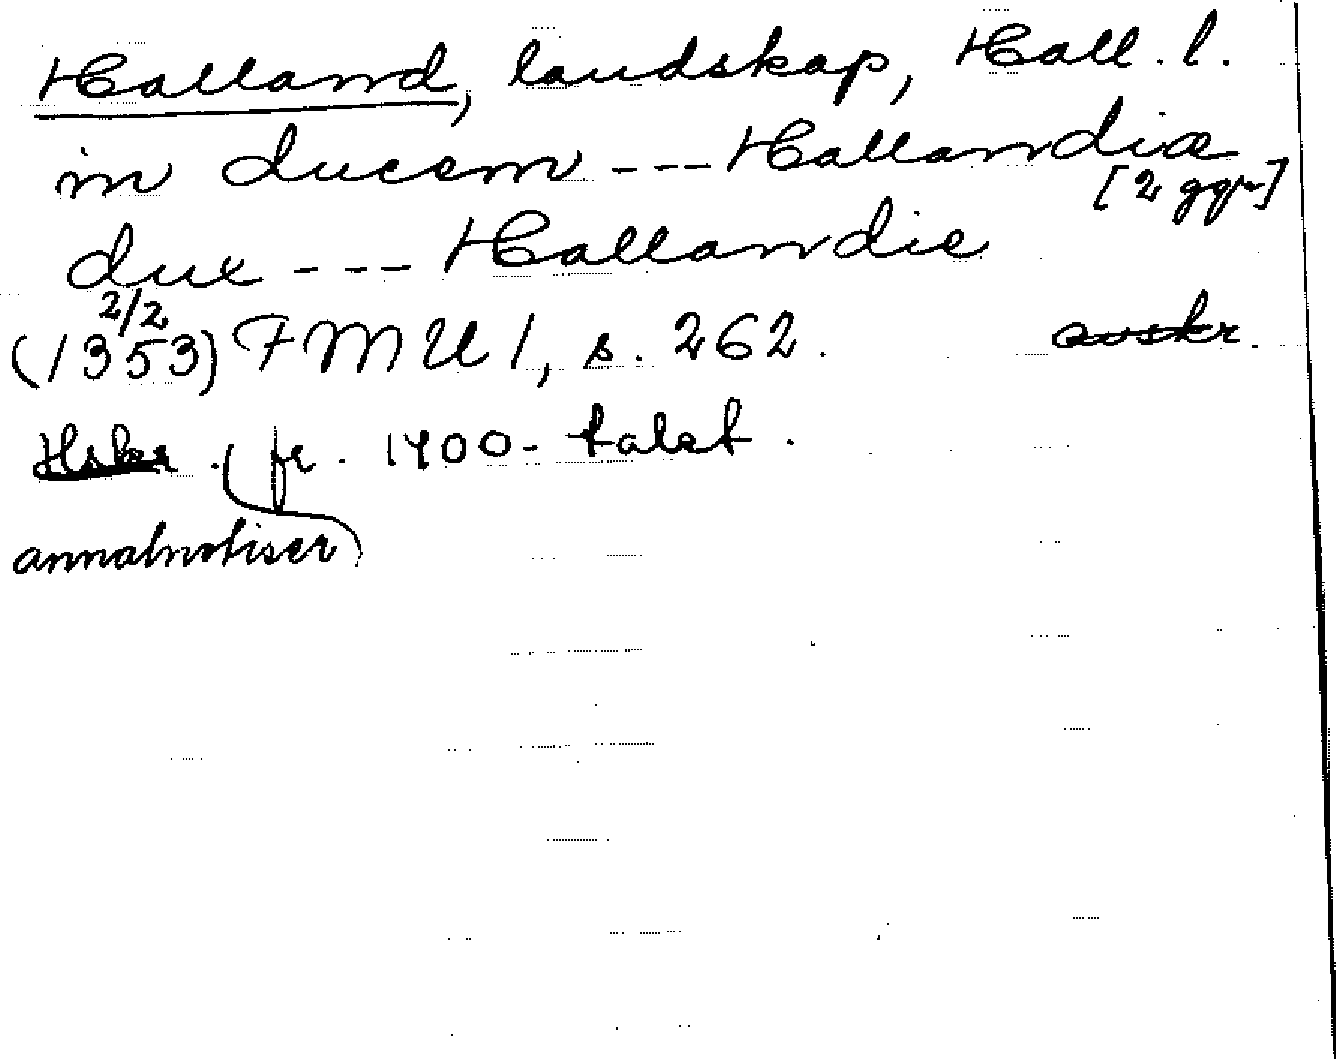 Halland, landskap, Hall. l.
in ducem --- Hallandiæ
[2 ggr]
dux --- Hallandie
2/2
(1353) FMU 1, s. 262. avskr.
Hskr. fr. 1400-talet.
(annalnotiser)